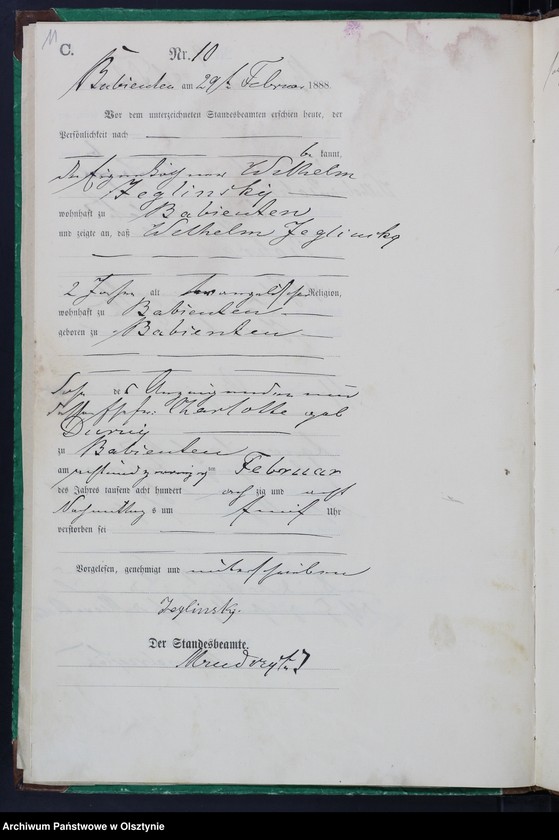 11
C.
Nr. 10
Babienten am 29ten Februar 1888
Vor dem unterzeichneten Standesbeamten erschien heute, der
Persönlichkeit nach
be kannt,
der Wilhelm
Jeglinsky
wohnhaft zu Babienten
und zeigte an, daß Wilhelm Jeglinsky
2 Jahre alt evangelischer Religion,
wohnhaft zu Babienten
geboren zu Babienten
Sohn des
Charlotte geb
zu Babienten
am Februar
des Jahres tausend acht hundert acht zig und acht
Nachmittag s um fünf Uhr
verstorben sei
Vorgelesen, genehmigt und unterschrieben
Jeglinsky.
Der Standesbeamte.
Archiwum Państwowe w Olsztynie